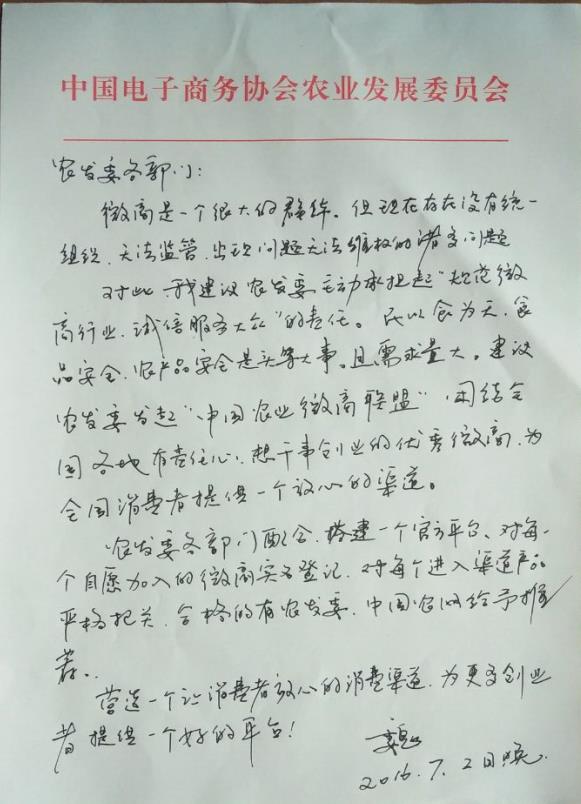 中国电子商务协会农业发展委员会
农发委各部门：
微商是一个很大的群体。但现在存在没有统一
组织、无法监管、出现问题无法维权的诸多问题
对此，我建议农发委主动承担起“规范微
商行业、诚信服务大众”的责任。民以食为天，食
品安全、农产品安全是头等大事。且需求量大。建议
农发委发起“中国农业微商联盟”，团结全
国各地有责任心、想干事创业的优秀微商，为
全国消费者提供一个放心的渠道。
农发委各部门配合，搭建一个官方平台、对每
个自愿加入的微商实名登记，对每个进入渠道产品
严格把关，合格的有农发委、中国农网给予推
荐。
营造一个让消费者放心的消费渠道，为更多创业
者提供一个好的平台！
2016.7.2日晚.